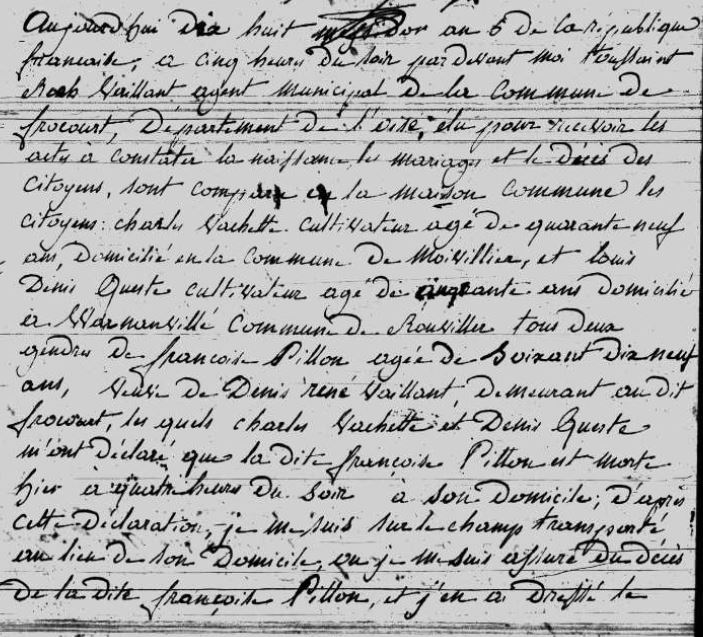 Aujourd'hui dix huit messidor an 6 de la république
francaise, a cinq heures du soir par devant moi toussaint
Roch Vaillant agent municipal de la commune de
frocourt, Département de l'oise, élu pour recevoir les
actes à constater la naissance, les mariages et le décès des
Citoyens, sont comparu en la maison commune les
citoyens: charles Vachette cultivateur agé de quarante neuf
ans, domicilié en la commune de Moivillier, et louis
Denis Queste cultivateur agé de cinquante ans domicilié
à Warnanvillé commune de Rouviller tous deux
gendres de françoise Pillon agée de Soixant dix neuf
ans, veuve de Denis rené Vaillant, demeurant au dit
frocourt, les quels charles Vachette et Denis Queste
m'ont déclaré que la dite françoise Pillon est morte
hier à quatre heures du soir à son domicile; d'après
cette déclaration, je me suis sur le champ transporté
au lieu de son Domicile, ou je me suis assuré du décès
de la dite françoise Pillon, et j'en ai dressé le